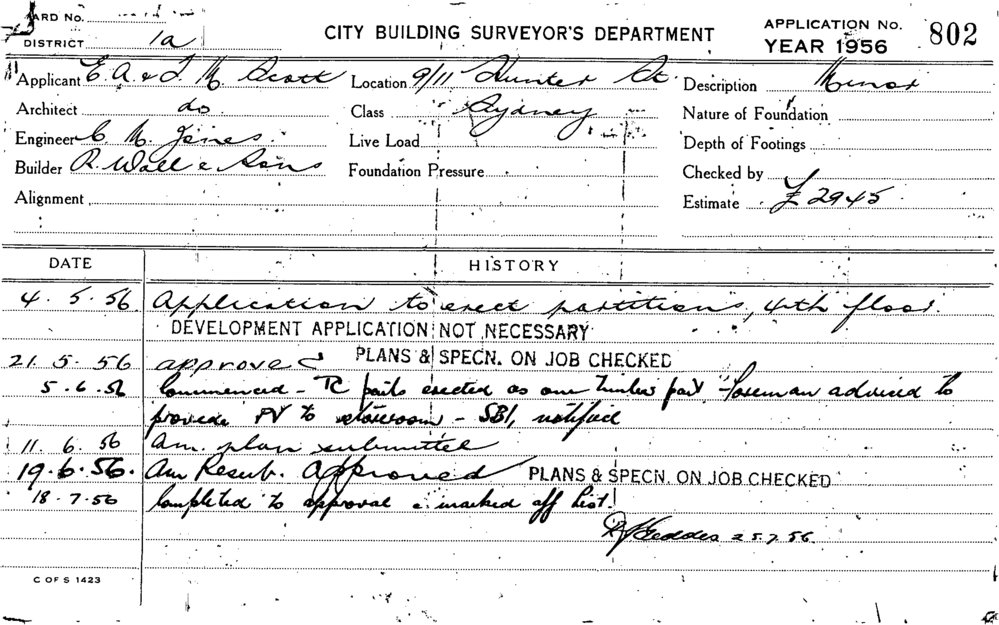 ARD No.
DISTRICT 1a
CITY BUILDING SURVEYOR'S DEPARTMENT
APPLICATION No. 802
YEAR 1956
Applicant E. A. & T. M. Scott
Location 9/11 Hunter St.
Description Minor
Architect do
Class Sydney
Nature of Foundation
Engineer C. M. Jones
Live Load
Depth of Footings
Builder R. Wall & Sons
Foundation Pressure
Checked by
Alignment
Estimate £2945
DATE HISTORY
4.5.56 Application to erect partitions, 4th floor.
DEVELOPMENT APPLICATION NOT NECESSARY
21.5.56 approved PLANS & SPECN. ON JOB CHECKED
5.6.56 Commenced - TC parts erected as one timber part - Foreman advised to
provide PV to storeroom - SBI, notified
11.6.56 Am. plan submitted
19.6.56. Am Resub. Approved PLANS & SPECN. ON JOB CHECKED
18.7.56 Completed to approval & marked off list.
Geddes 25.7.56.
C OF S 1423